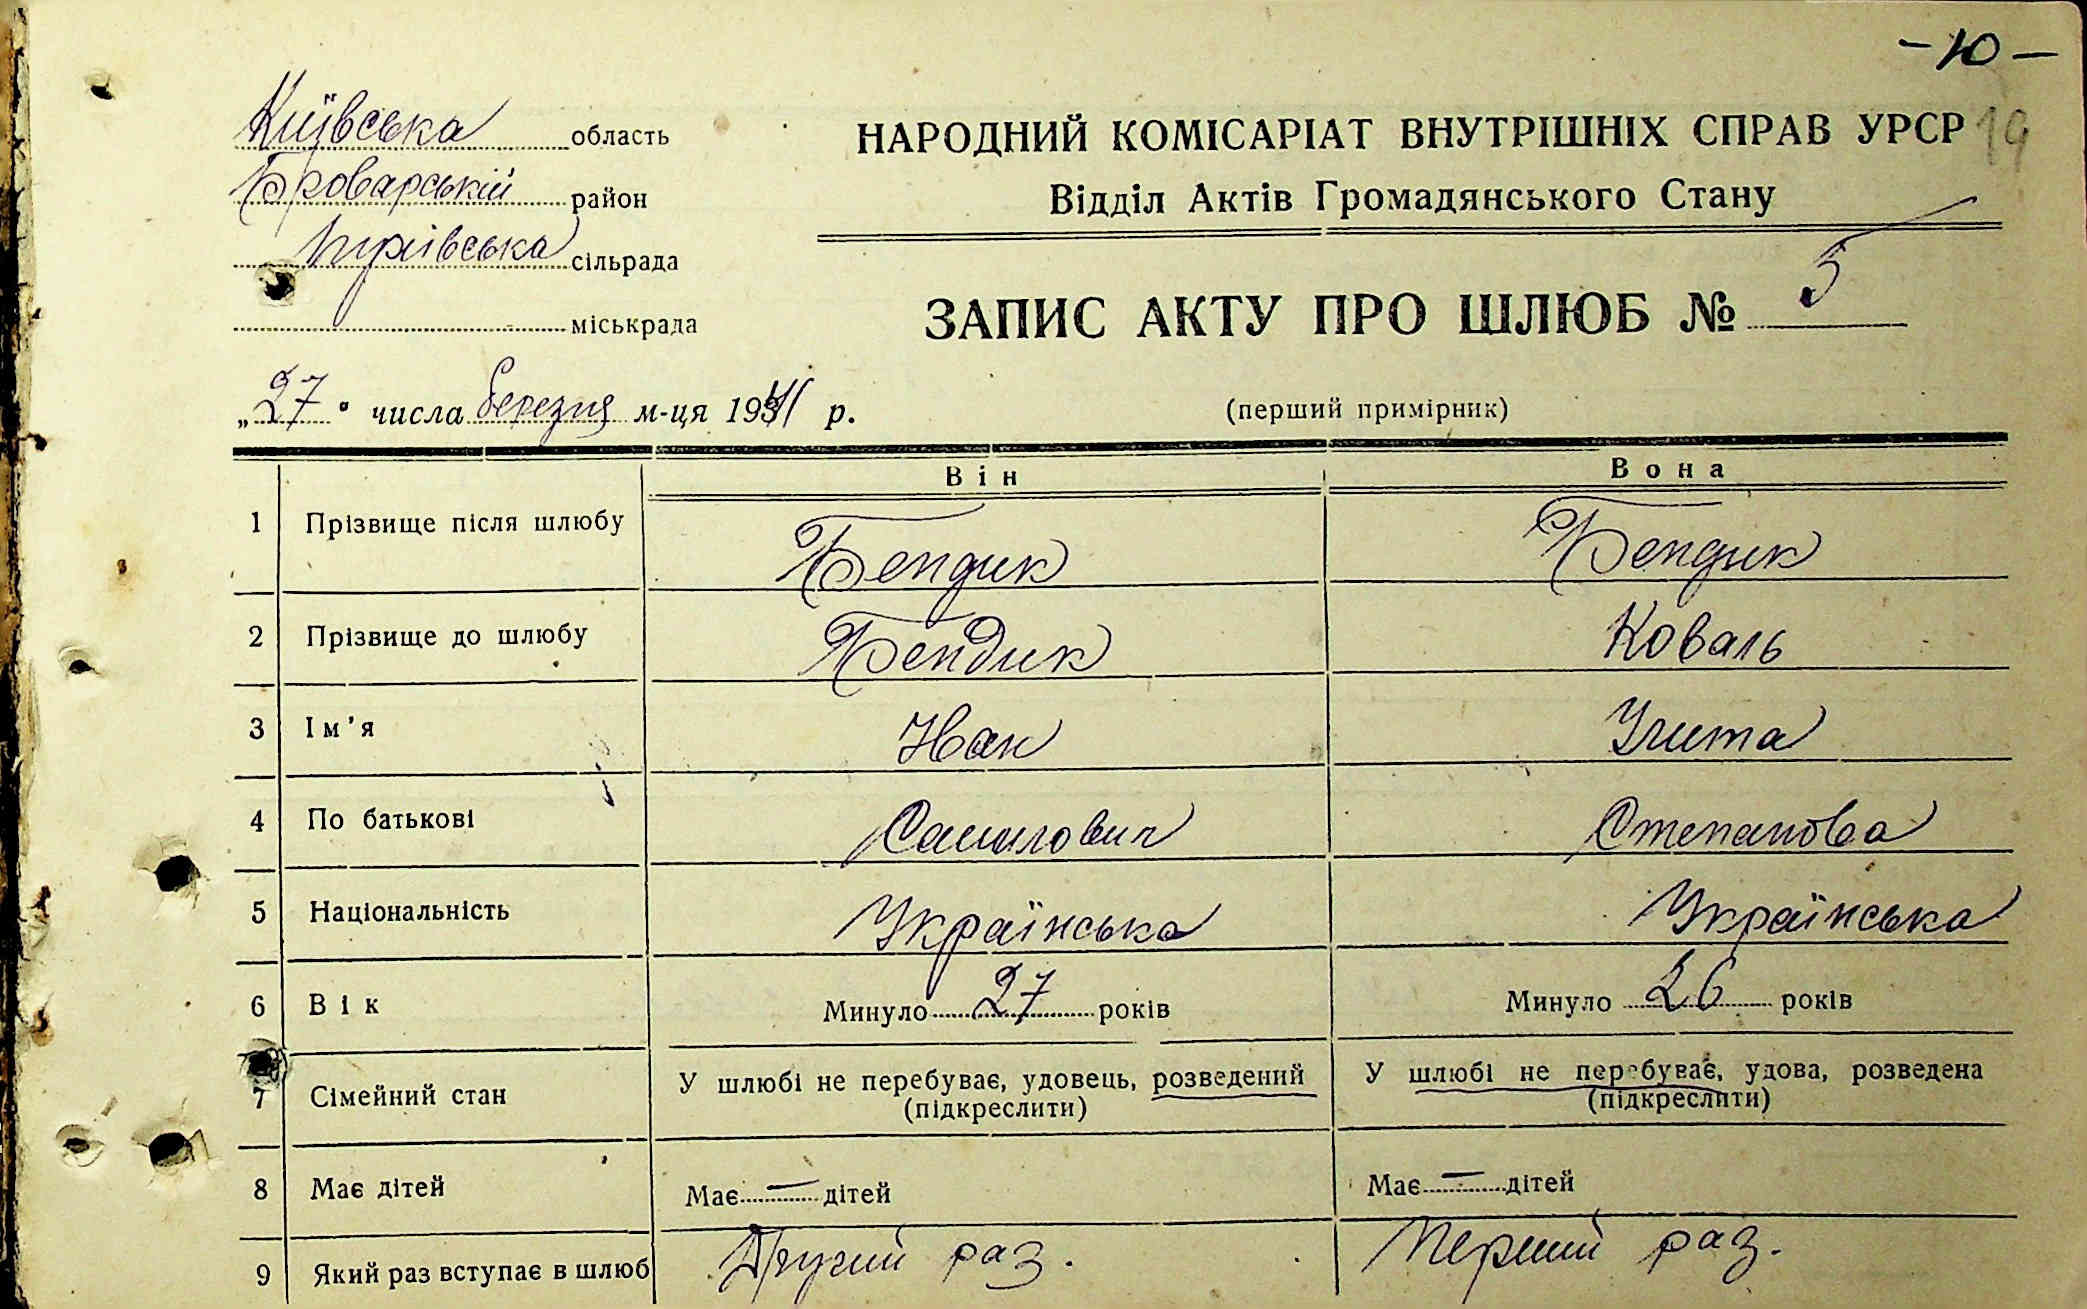 -10-
19
Київська область
Броварській район
сільрада
міськрада
НАРОДНИЙ КОМІСАРІАТ ВНУТРІШНІХ СПРАВ УРСР
Відділ Актів Громадянського Стану
ЗАПИС АКТУ ПРО ШЛЮБ № 5
(перший примірник)
„27" числа березня м-ця 1941 р.
Він Вона
1 Прізвище після шлюбу Бендик Бендик
2 Прізвище до шлюбу Бендик Коваль
3 Ім'я Іван Улита
4 По батькові Самилович Степанова
5 Національність Українська Українська
6 Вік Минуло 27 років Минуло 26 років
7 Сімейний стан У шлюбі не перебуває, удовець, розведений У шлюбі не перебуває, удова, розведена
(підкреслити) (підкреслити)
8 Має дітей Має — дітей Має — дітей
9 Який раз вступає в шлюб Другий раз. Перший раз.